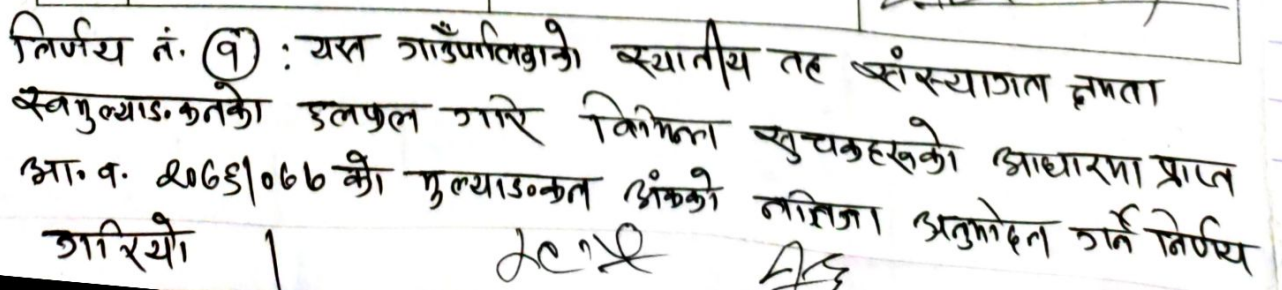 निर्णय नं. (१) : यस गाउँपालिकाको स्थानीय तह संस्थागत क्षमता
स्वमुल्याङकनको छलफल गरि विभिन्न सुचकहरुको आधारमा प्राप्त
आ.व. २०७६/०७७ को मुल्याङकन अंकको नतिजा अनुमोदन गर्ने निर्णय
गरियो ।